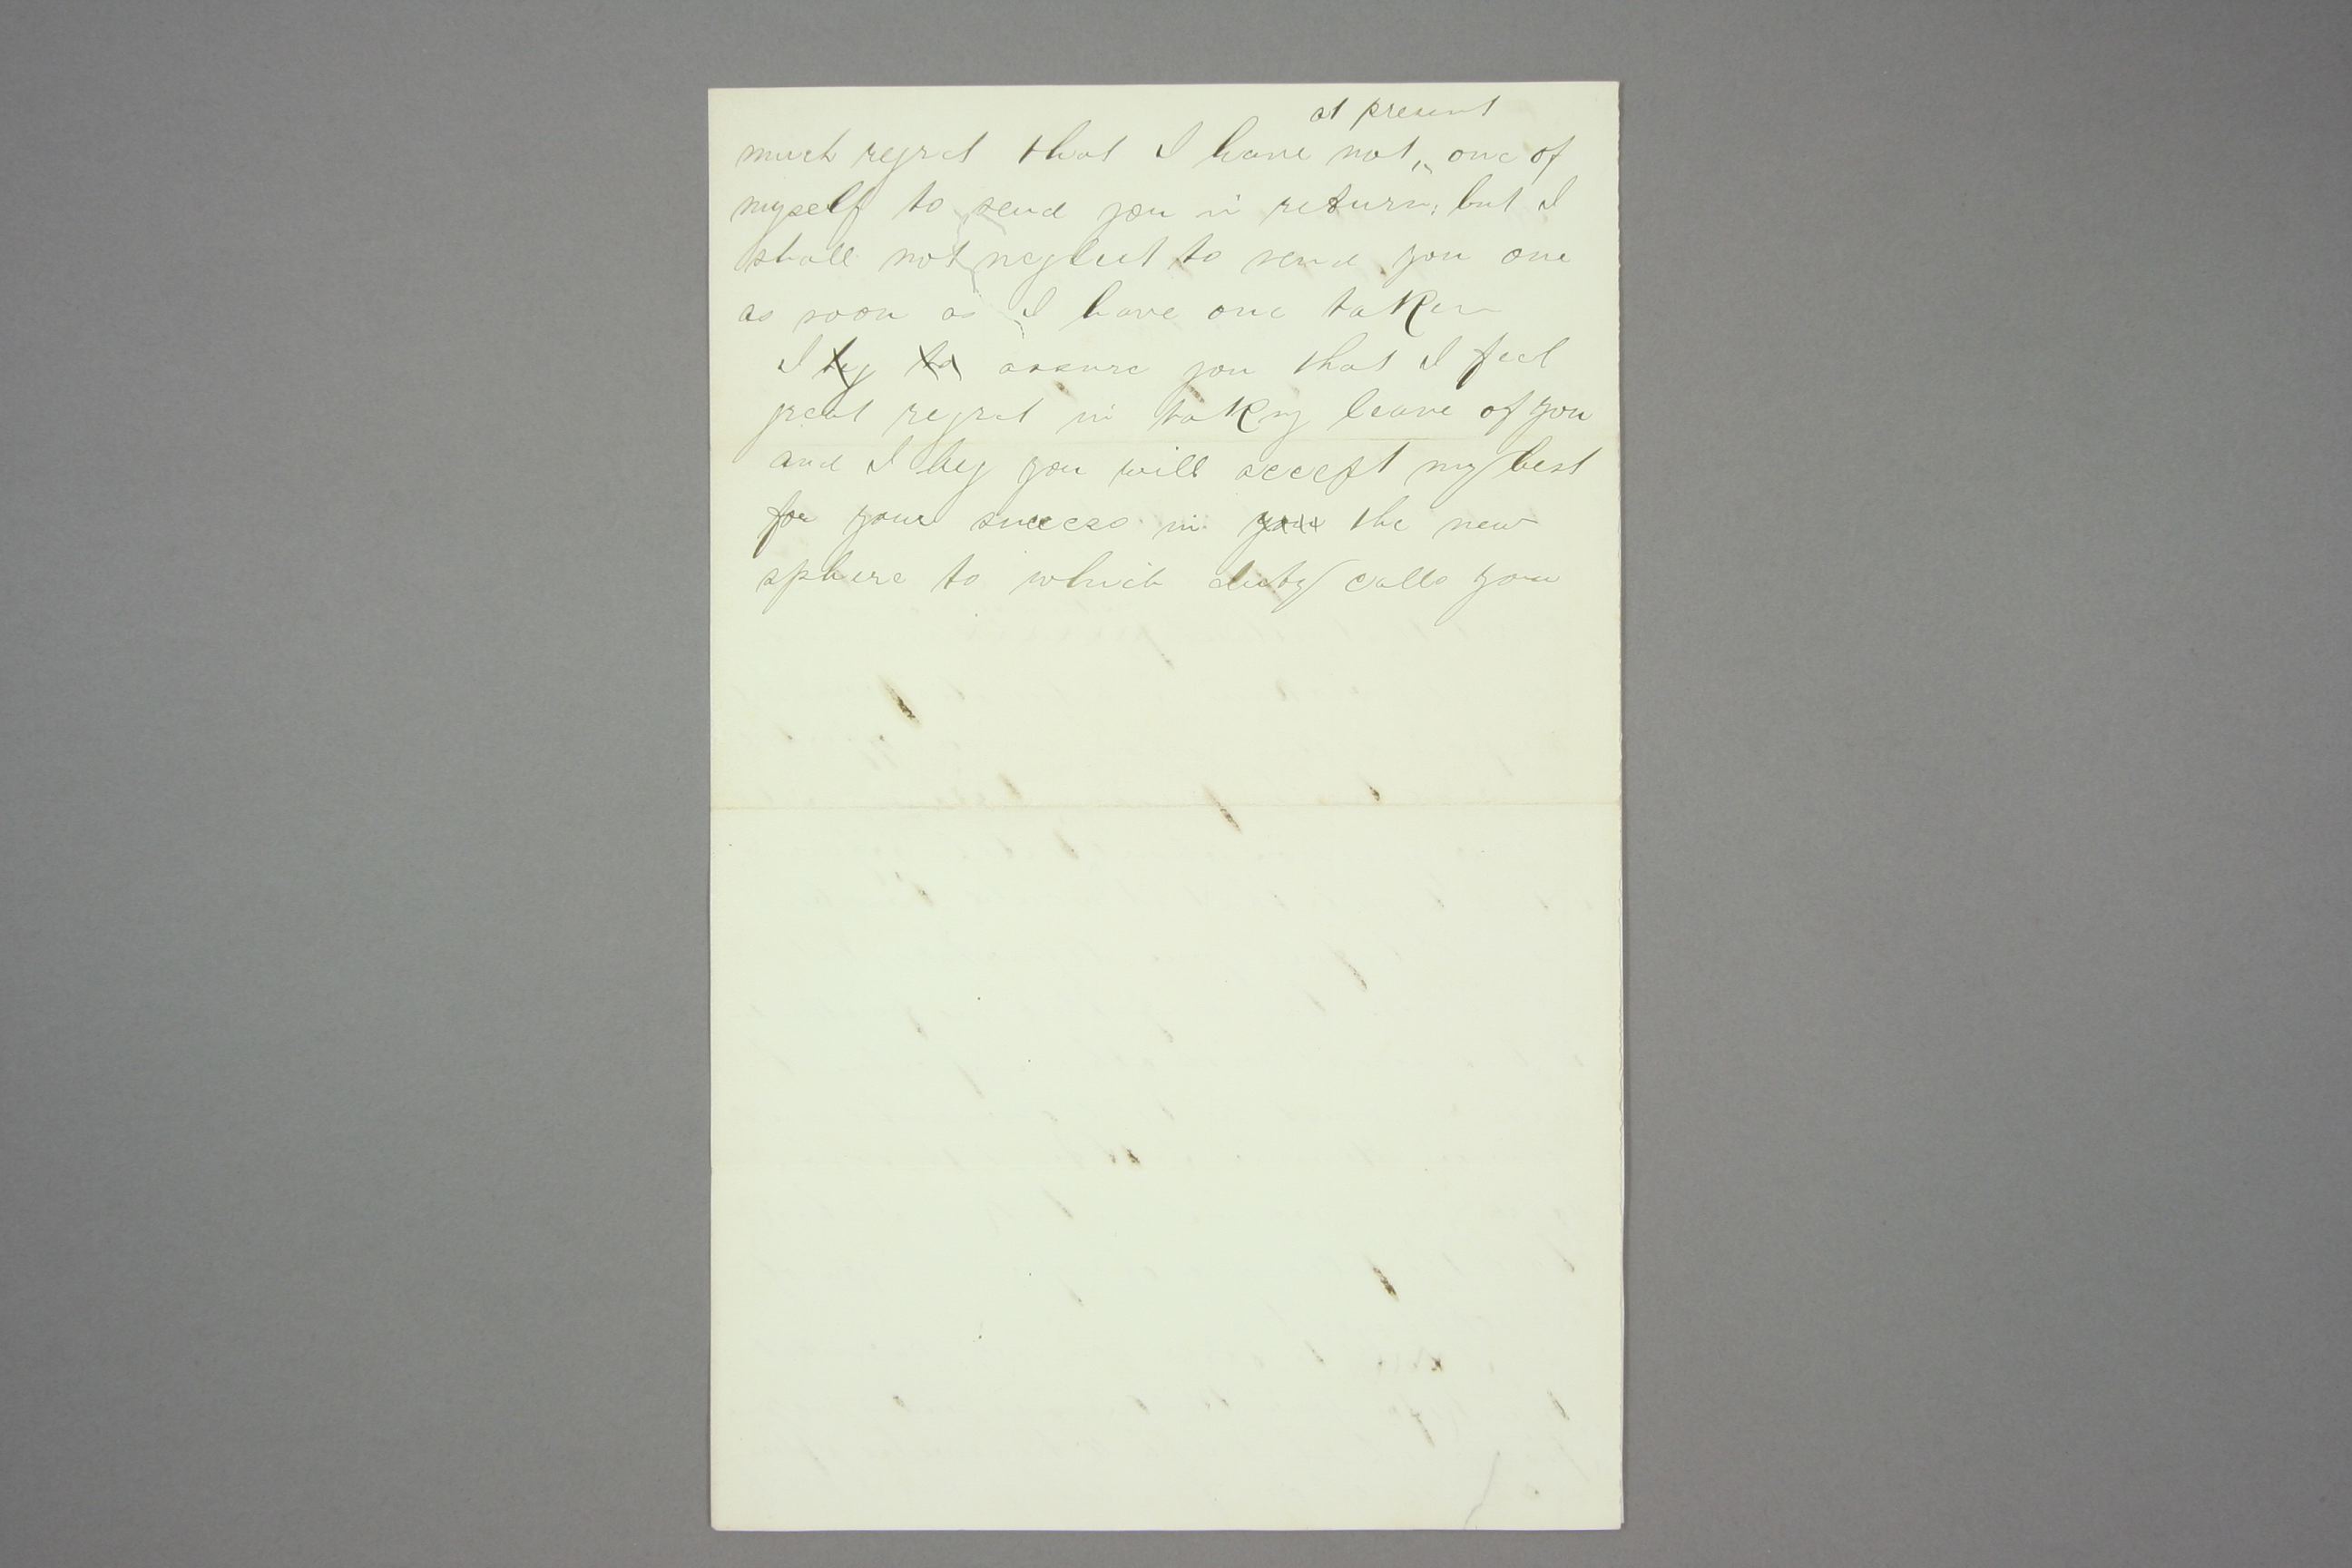 at present
much regret that I have not one of
myself to send you in return, but I
shall not neglect to send you one
as soon as I have one taken
I beg to assure you that I feel
great regret in taking leave of you
and I beg you will accept my best
for your success in your the new
sphere to which duty calls you